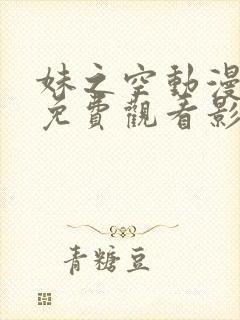 妹之空動漫
免費觀看影
青糖豆